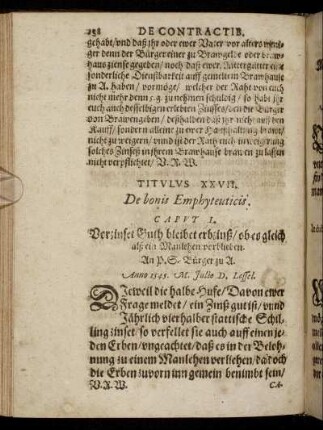 258 DE CONTRACTIB.
gehabt/vnd daß ihr oder ewer Vater vor alters weni-
ger denn der Bürger einer zu Brawgelde oder braw-
hauszinse gegeben/ noch daß ewer Rittergüter eine
sonderliche Dienstbarkeit auff gemeinem Brawhause
zu A. haben/ vormöge/ welcher der Raht von euch
nicht mehr denn 5 g. zunehmen schuldig/ so habt ihr
euch auch desselbigen erlebten Zinses/ den die Bürger
von Brawen geben/ deßhalben daß ihr nicht auff den
Kauff/ sondern alleine zu ewer Haußhaltung brawt/
nicht zu weigern/ vnd ist der Raht euch vmb weigerung
solches Zinses in ihrem Brawhause brawen zu lassen
nicht verpflichtet/ V. R. W.
TITVLVS XXVII.
De bonis Emphyteuticis.
CAPVT I.
Verzinset Guth bleibet erbzinß/ ob es gleich
alß ein Manlehen verblieben.
An P. S. Bürger zu A.
Anno 1545. M. Julio D. Lossel.
DJeweil die halbe Hufe/ Davon ewer
Frage meldet/ ein Zinß gut ist/ vnnd
Jährlich vierhalber stattische Schil-
ling zinset/ so verfellet sie auch auff einen je-
den Erben/ vngeachtet/ daß es in der Beleh-
nung zu einem Manlehen verliehen/ daß doch
die Erben zuvorn inn gemein benimbt sein/
V. R. W. CA-